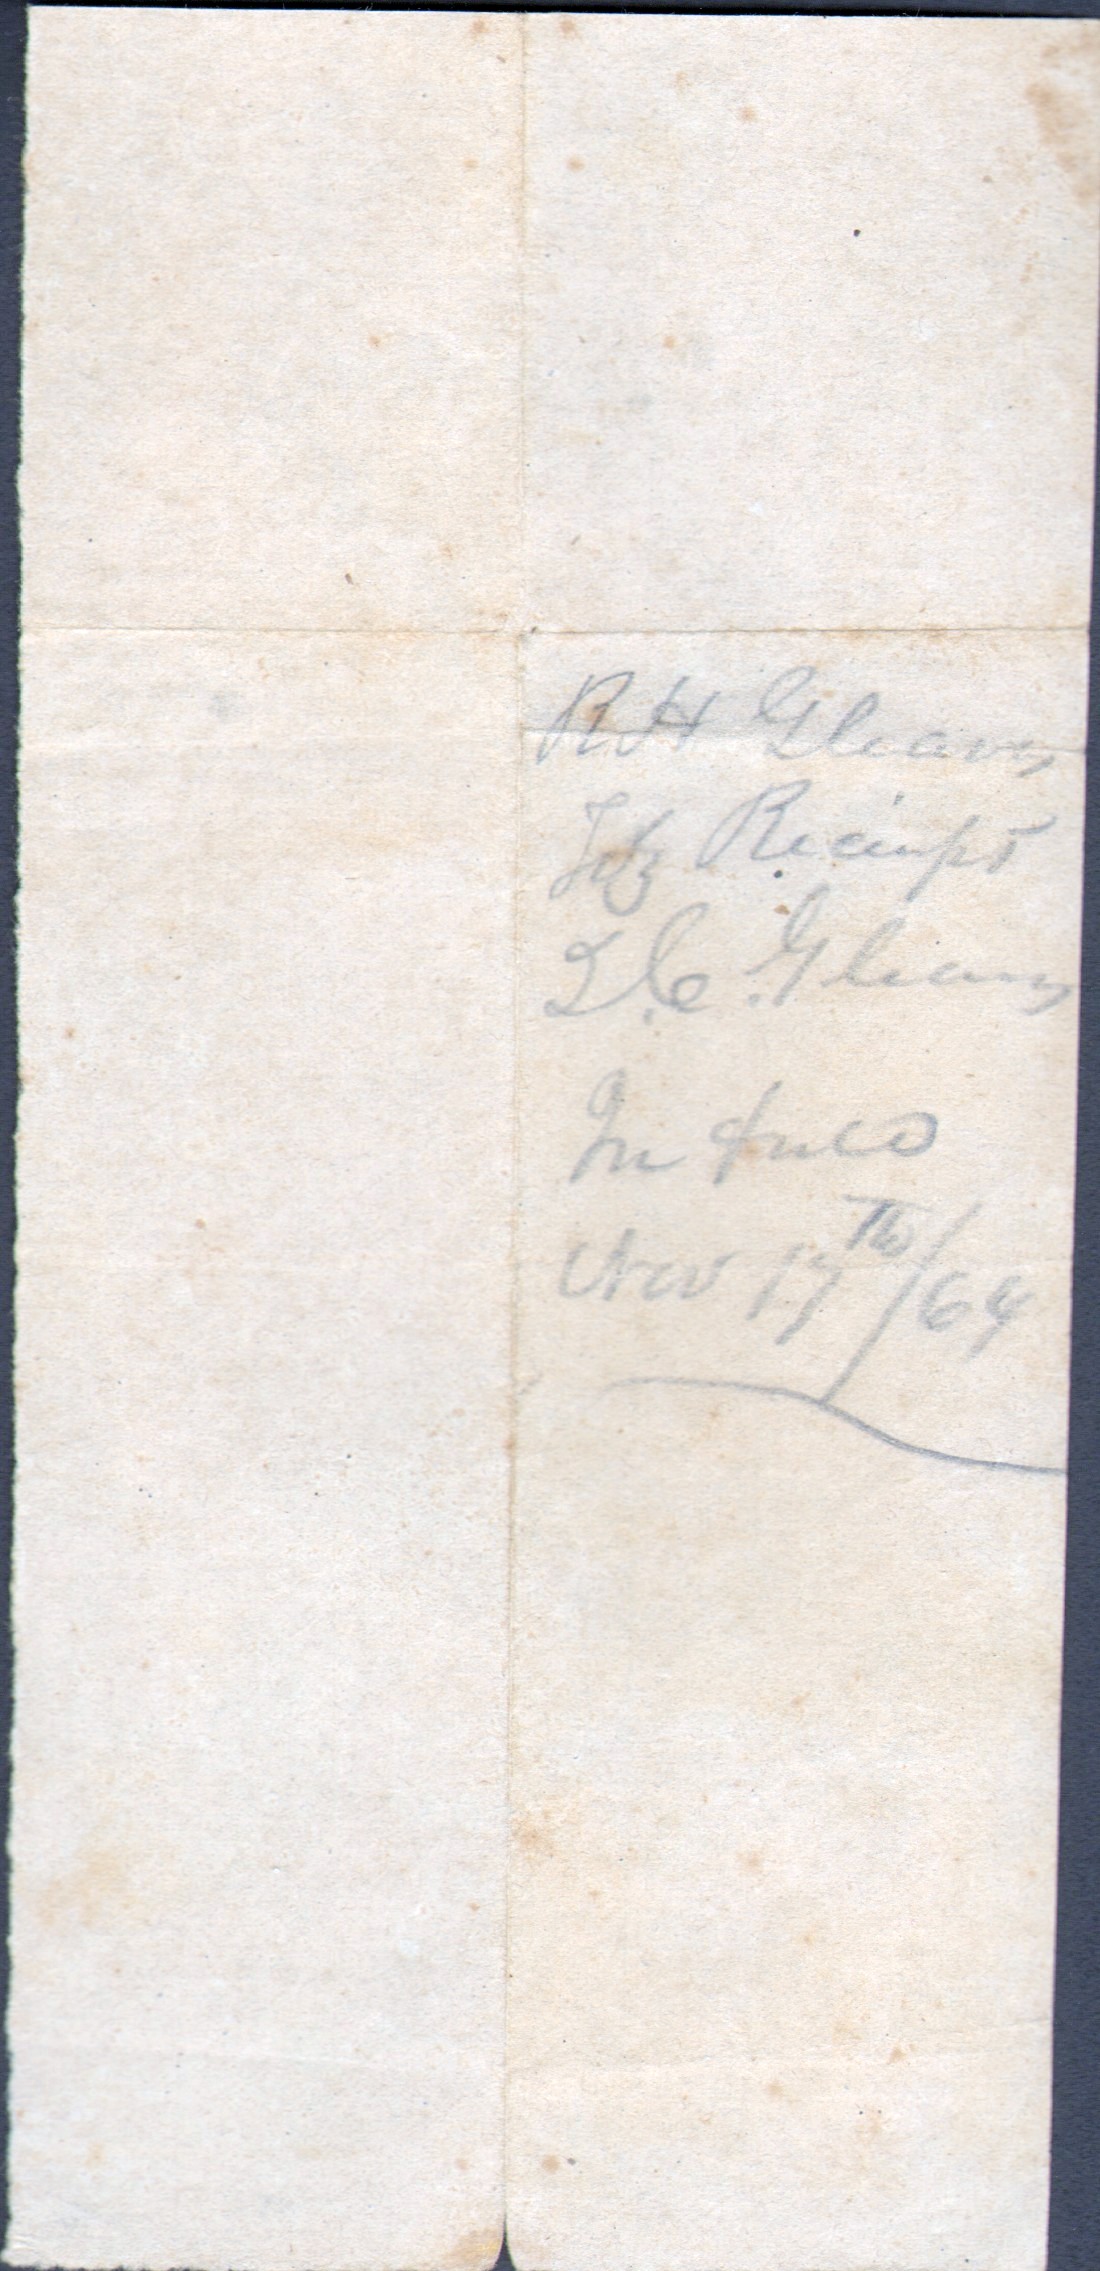 R H Gleaves
Receipt
Gleaves
In full
Nov 17th/64